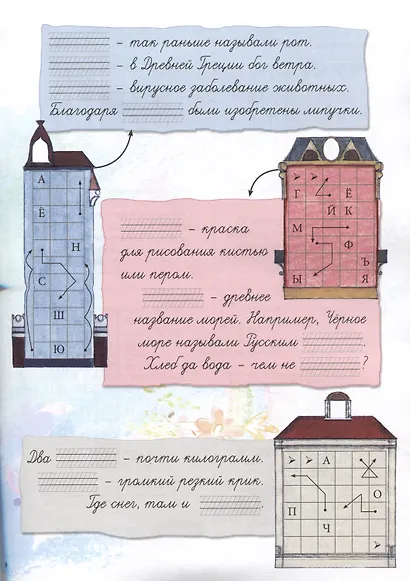 – так раньше называли рот.
– в Древней Греции бог ветра.
– вирусное заболевание животных.
Благодаря были изобретены липучки.
А
Ё
Н
С
Ш
Ю
Г Ё
Й К
М
Ф
Ъ
Ы Я
– краска
для рисования кистью
или пером.
– древнее
название морей. Например, Чёрное
море называли Русским
Хлеб да вода – чем не ?
Два – почти килограмм.
– громкий резкий крик.
Где снег, там и .
А
О
П
Ч